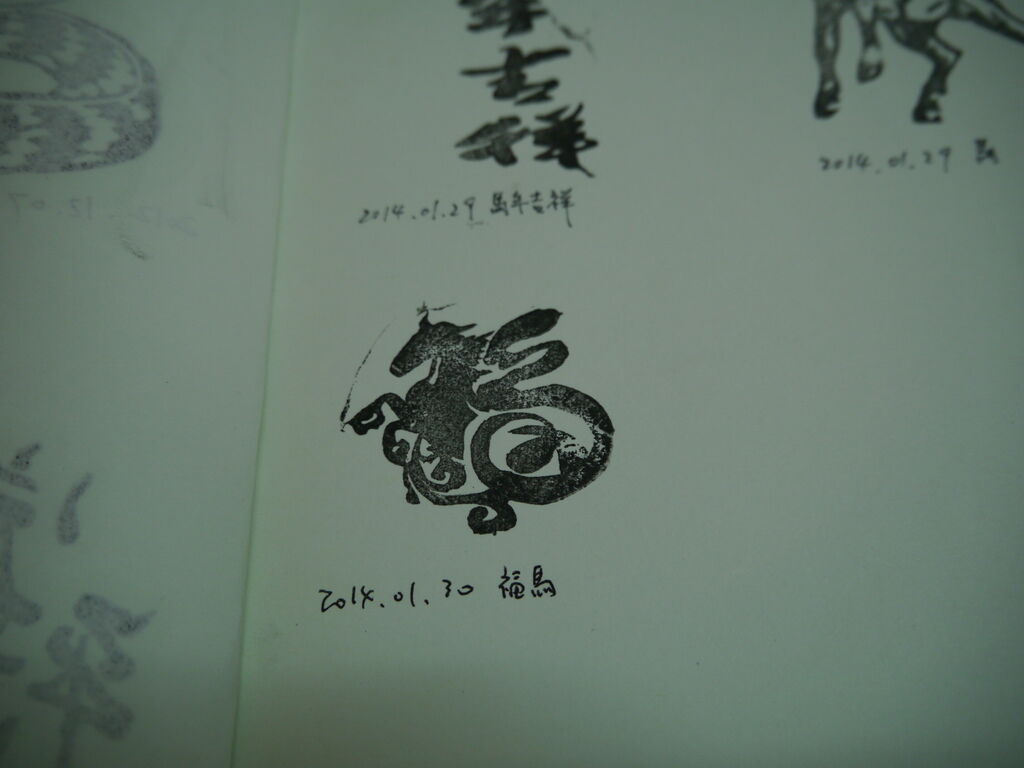 年吉祥
2014.01.29 馬年吉祥
2014.01.29 馬
2014.01.30 福馬